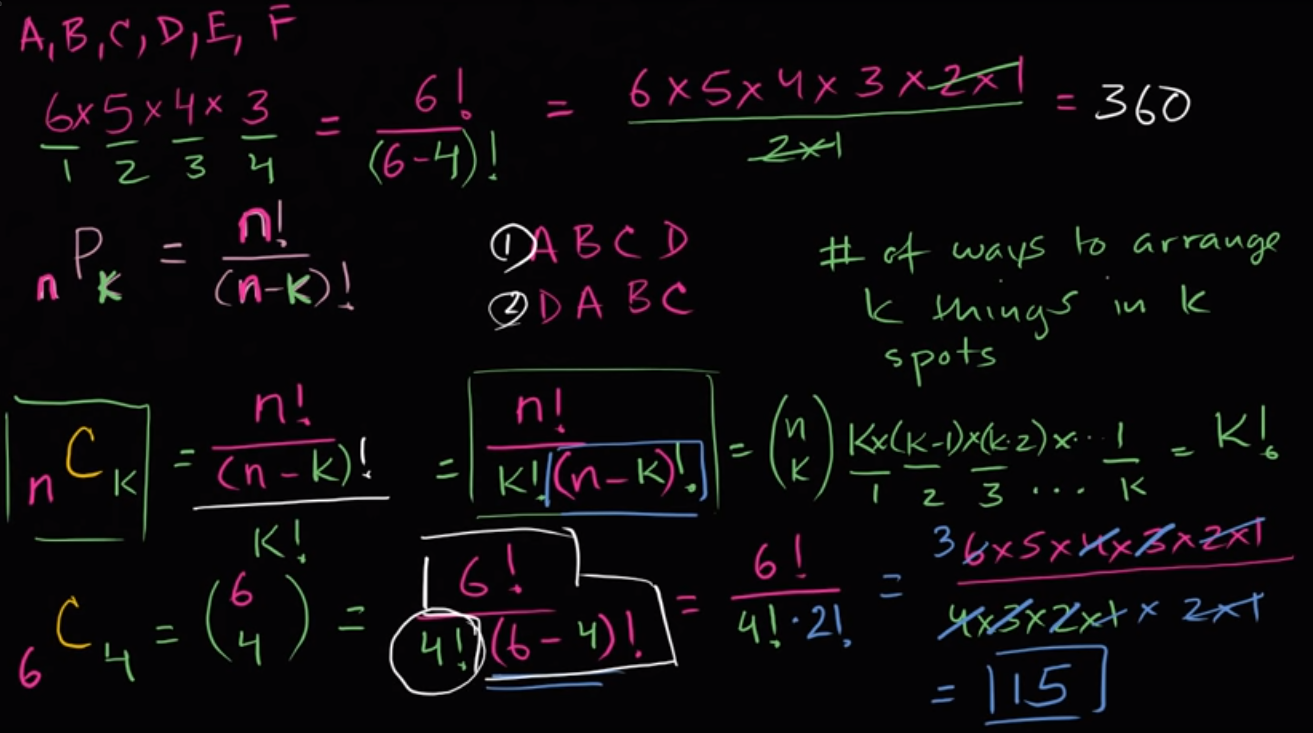 A, B, C, D, E, F
6×5×4×3 = 6!/(6-4)! = 6×5×4×3×2×1/2×1 = 360
1 2 3 4
nPk = n!/(n-k)!
① A B C D
② D A B C
# of ways to arrange
k things in k
spots
nCk = n!/(n-k)!/k! = n!/k!(n-k)! = (n k)
k×(k-1)×(k-2)×...1 = k!
1 2 3 ... k
6C4 = (6 4) = 6!/4!(6-4)! = 6!/4!·2! = 3 6×5×4×3×2×1/4×3×2×1×2×1
= 15